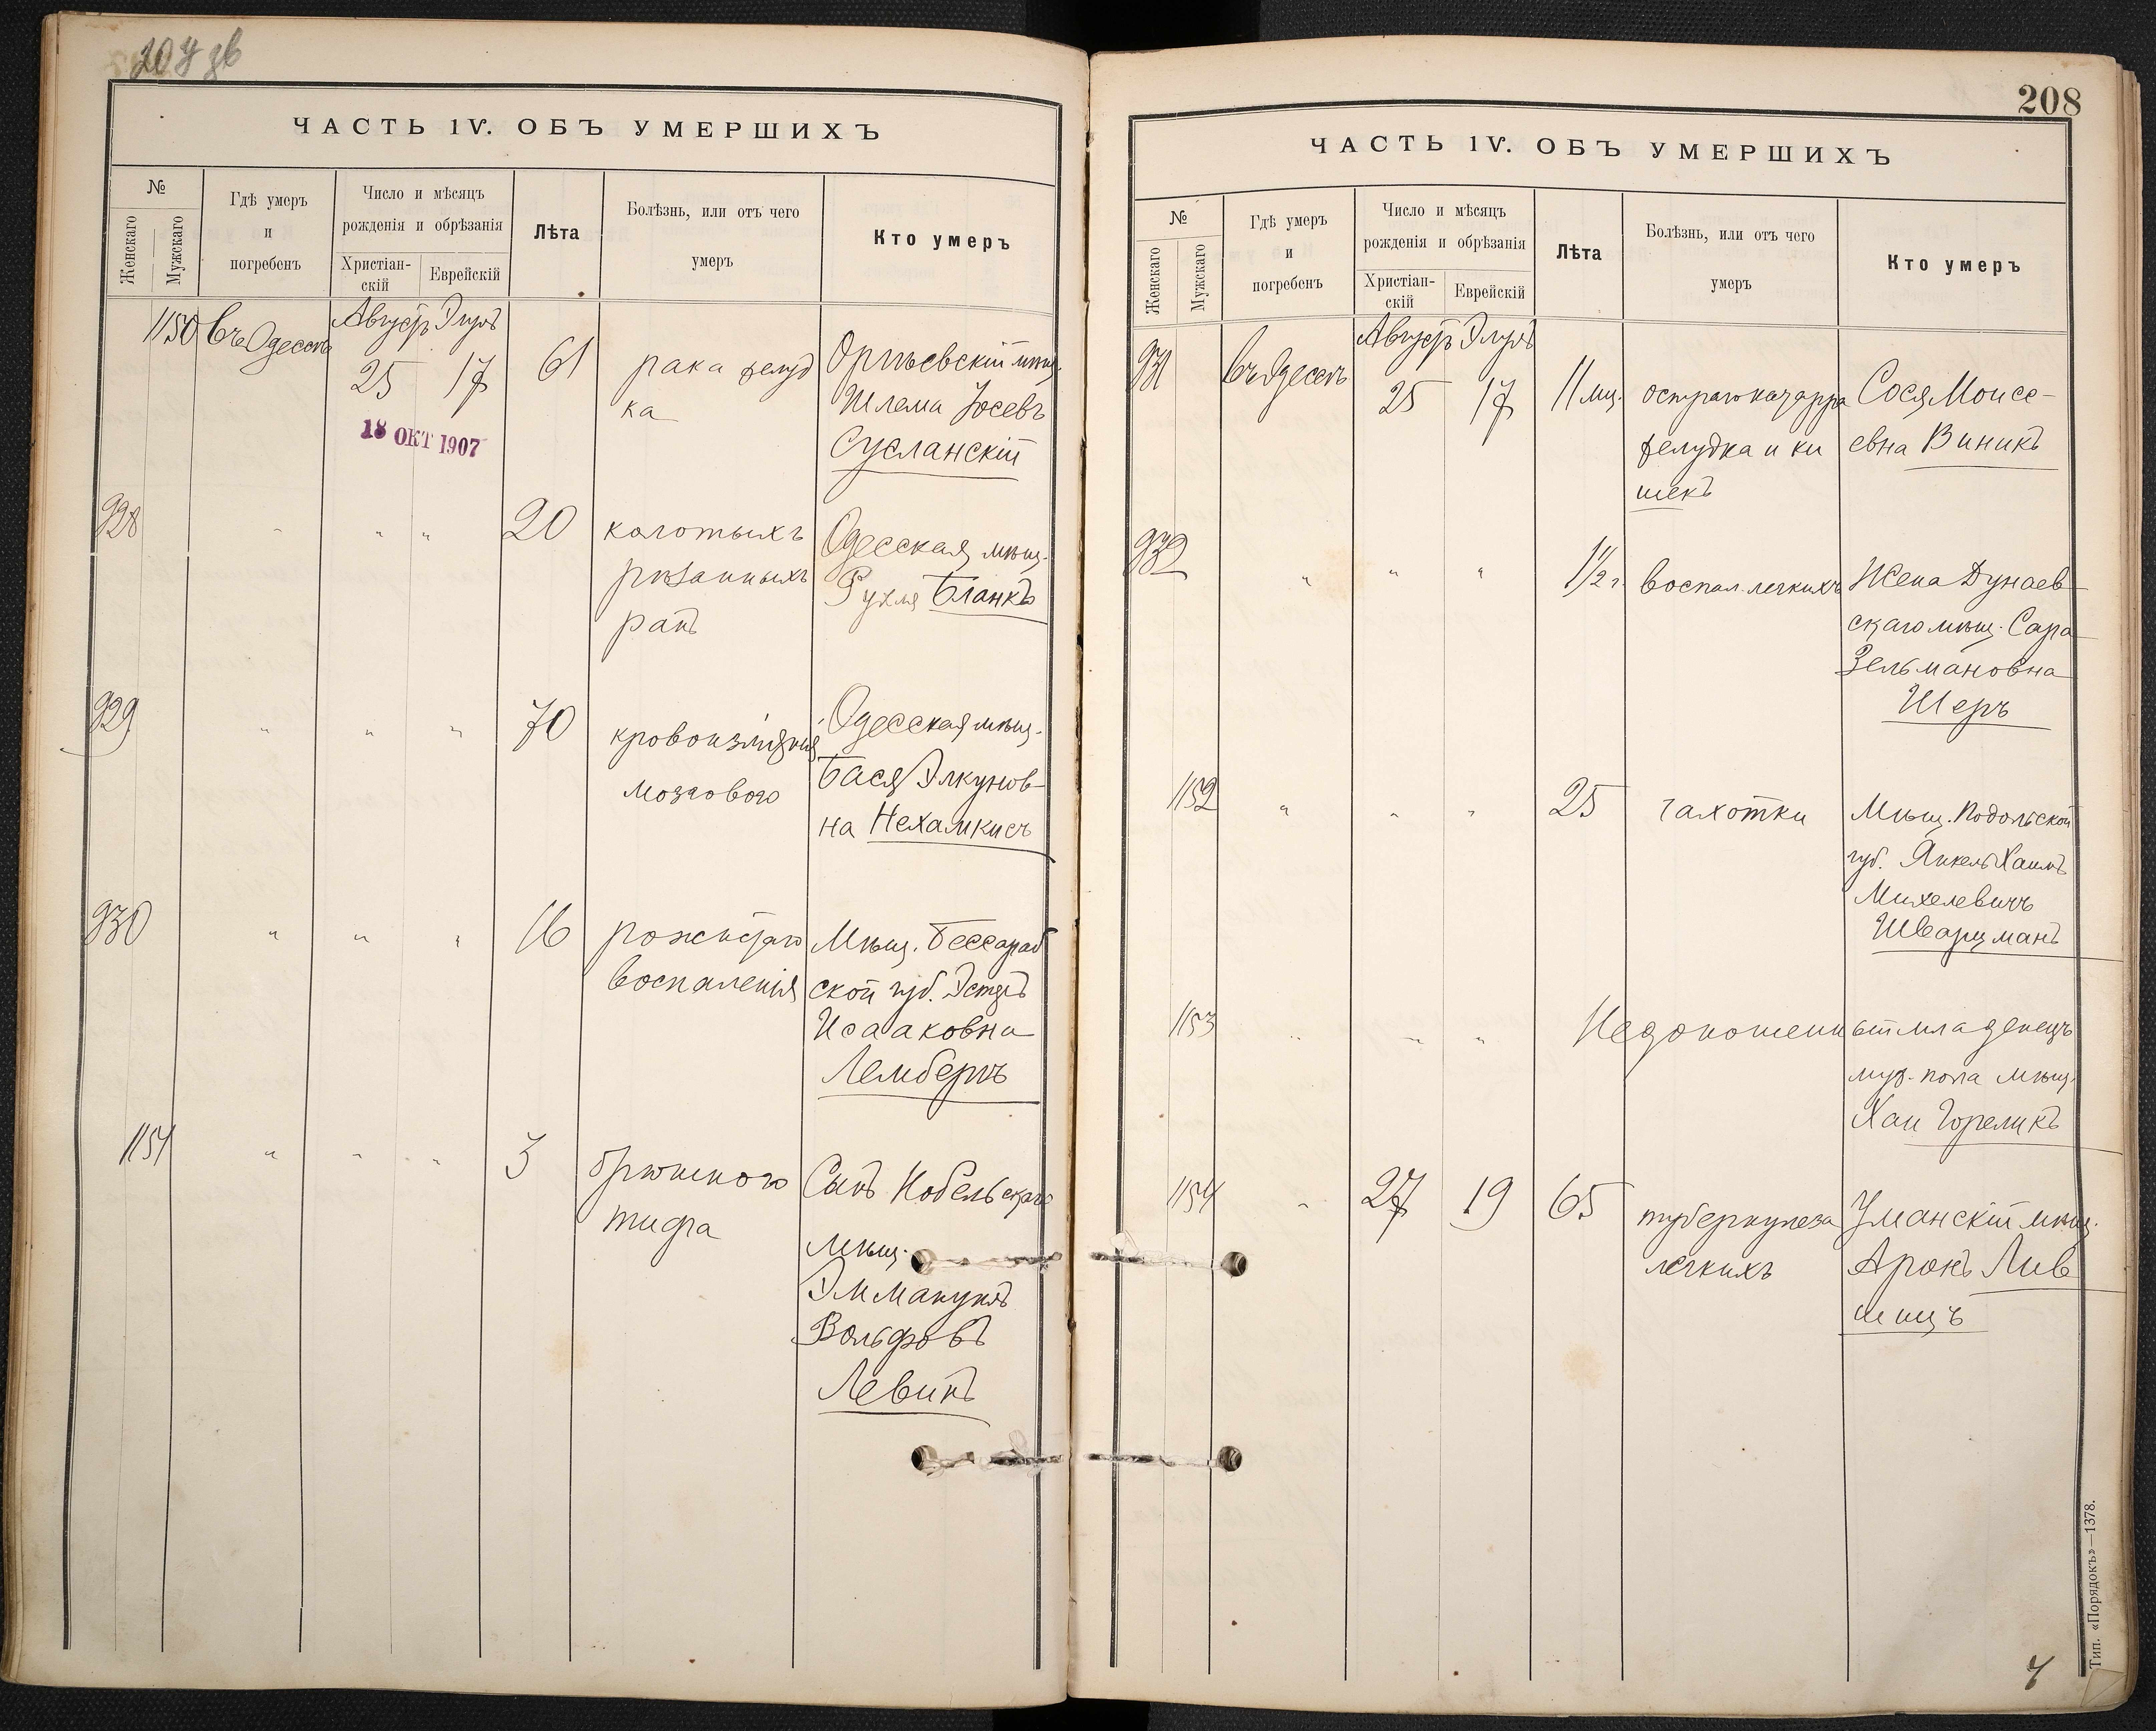 207 об
ЧАСТЬ IV. ОБЪ УМЕРШИХЪ
№
Женскаго
Мужскаго
Гдѣ умеръ
и
погребенъ
Число и мѣсяцъ
рожденія и обрѣзанія
Христіан-
скій
Еврейскій
Лѣта
Болѣзнь, или отъ чего
умеръ
Кто умеръ
1150 въ Одессѣ Август Элулъ
25 17 61 рака желуд Оргѣевскій мѣщ.
ка Шлема Іосевъ
18 ОКТ 1907 Сусланскій
928 " " " 20 колотыхъ Одесская мѣщ.
рѣзанныхъ Рухля Бланкъ
ранъ
929 " " " 70 кровоизліянія Одесская мѣщ.
мозгового Бася Элкунов-
на Нехамкисъ
930 " " " 16 рожистаго Мѣщ. Бессараб
воспаленія ской губ. Эстеръ
Исааковна
Лембергъ
1151 " " " 3 брюшного Сынъ Кобельскаго
тифа мѣщ.
Эммануилъ
Вольфовъ
Левинъ
208
ЧАСТЬ IV. ОБЪ УМЕРШИХЪ
№
Женскаго
Мужскаго
Гдѣ умеръ
и
погребенъ
Число и мѣсяцъ
рожденія и обрѣзанія
Христіан-
скій
Еврейскій
Лѣта
Болѣзнь, или отъ чего
умеръ
Кто умеръ
931 въ Одессѣ Август Элулъ
25 17 11 мѣс. остраго катарра Сося Моисе-
желудка и ки евна Виникъ
шекъ
932 " " " 1 1/2 г. воспал. легкихъ Жена Дунаев-
скаго мѣщ. Сара
Зельмановна
Шеръ
1152 " " " 25 чахотки Мѣщ. Подольской
губ. Янкель Хаимъ
Михелевичъ
Шварцманъ
1153 " " " Недоношенный младенецъ
муж. пола мѣщ.
Хаи Гореликъ
1154 " 27 19 65 туберкулеза Уманскій мѣщ.
легкихъ Аронъ Лив
шицъ
Тип. «Порядокъ»—1378.